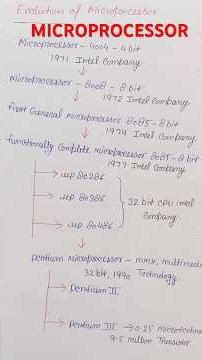 Evolution of Microprocessor
MICROPROCESSOR
Microprocessor - 4004 - 4 bit
1971 Intel Company
Microprocessor - 8008 - 8 bit
1972 Intel Company
First General microprocessor 8085 - 8 bit
1974 Intel Company
Functionally Complete microprocessor 8085 - 8 bit
1977 Intel Company
μp 80286
μp 80386
μp 80486
32 bit CPU intel
Company
Pentium microprocessor - mmx, multimedia
32 bit, 1990 Technology
Pentium II
Pentium III → 0.25
9.5 million Transistor